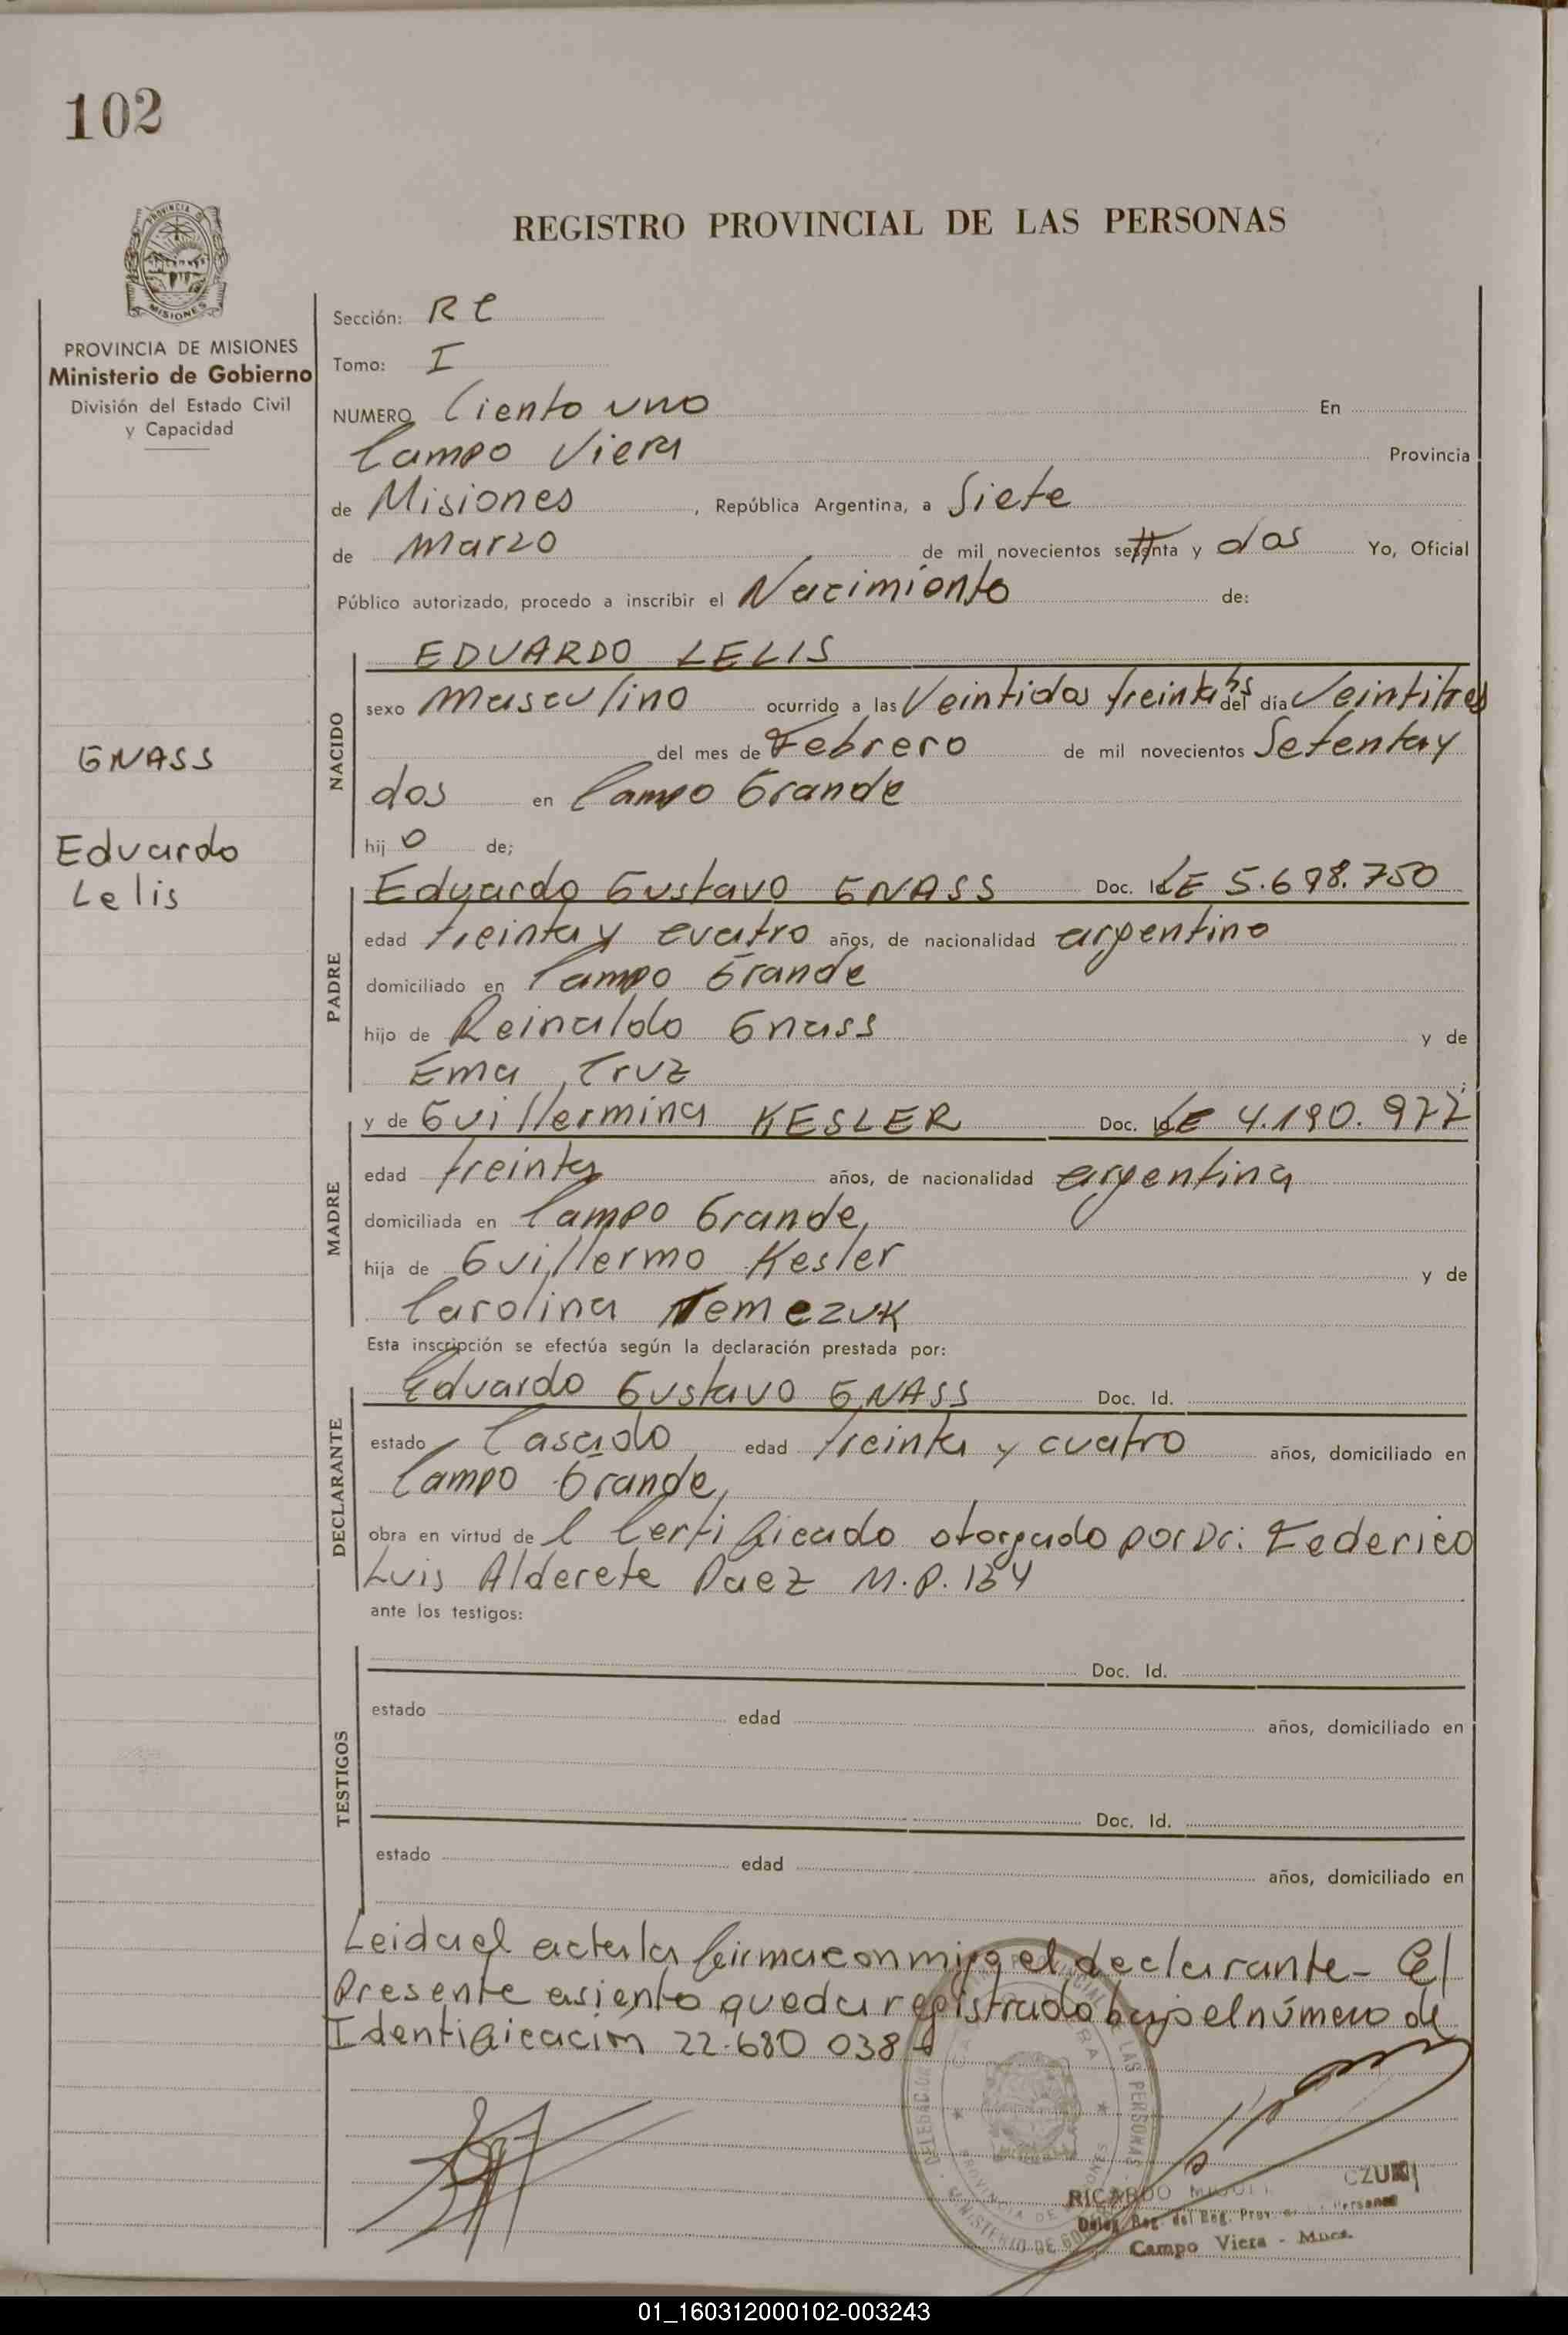 102
REGISTRO PROVINCIAL DE LAS PERSONAS
PROVINCIA DE
MISIONES
PROVINCIA DE MISIONES
Ministerio de Gobierno
División del Estado Civil
y Capacidad
GNASS
Eduardo
Lelis
Sección: RC
Tomo: I
NUMERO Ciento uno En
Campo Viera Provincia
de Misiones, República Argentina, a Siete
de Marzo de mil novecientos setenta y dos Yo, Oficial
Público autorizado, procedo a inscribir el Nacimiento de:
NACIDO
EDUARDO LELIS
sexo masculino ocurrido a las Veintidos treinta hs del día Veintitres
del mes de Febrero de mil novecientos Setenta y
dos en Campo Grande
hijo de;
PADRE
Eduardo Gustavo GNASS Doc. Id. LE 5.698.750
edad treinta y cuatro años, de nacionalidad argentino
domiciliado en Campo Grande
hijo de Reinaldo Gnass y de
Ema Cruz ;
MADRE
y de Guillermina KESLER Doc. Id. LE 4.190.977
edad treinta años, de nacionalidad argentina
domiciliada en Campo Grande,
hija de Guillermo Kesler y de
Carolina Temczuk
Esta inscripción se efectúa según la declaración prestada por:
DECLARANTE
Eduardo Gustavo GNASS Doc. Id.
estado Casado, edad treinta y cuatro años, domiciliado en
Campo Grande,
obra en virtud del Certificado otorgado por Dr: Federico
Luis Alderete Paez M.P. 134
ante los testigos:
TESTIGOS
Doc. Id.
estado edad años, domiciliado en
Doc. Id.
estado edad años, domiciliado en
Leida el acta la firma conmigo el declarante- El
Presente asiento queda registrado bajo el número de
Identificación 22.680 038-
LAS PERSONAS
PROVINCIA DE
MINISTERIO DE
RICARDO MIGUEL CZUK
Deleg. Reg. del Reg. Prov. Personas
Campo Viera - Mnes.
01_160312000102-003243